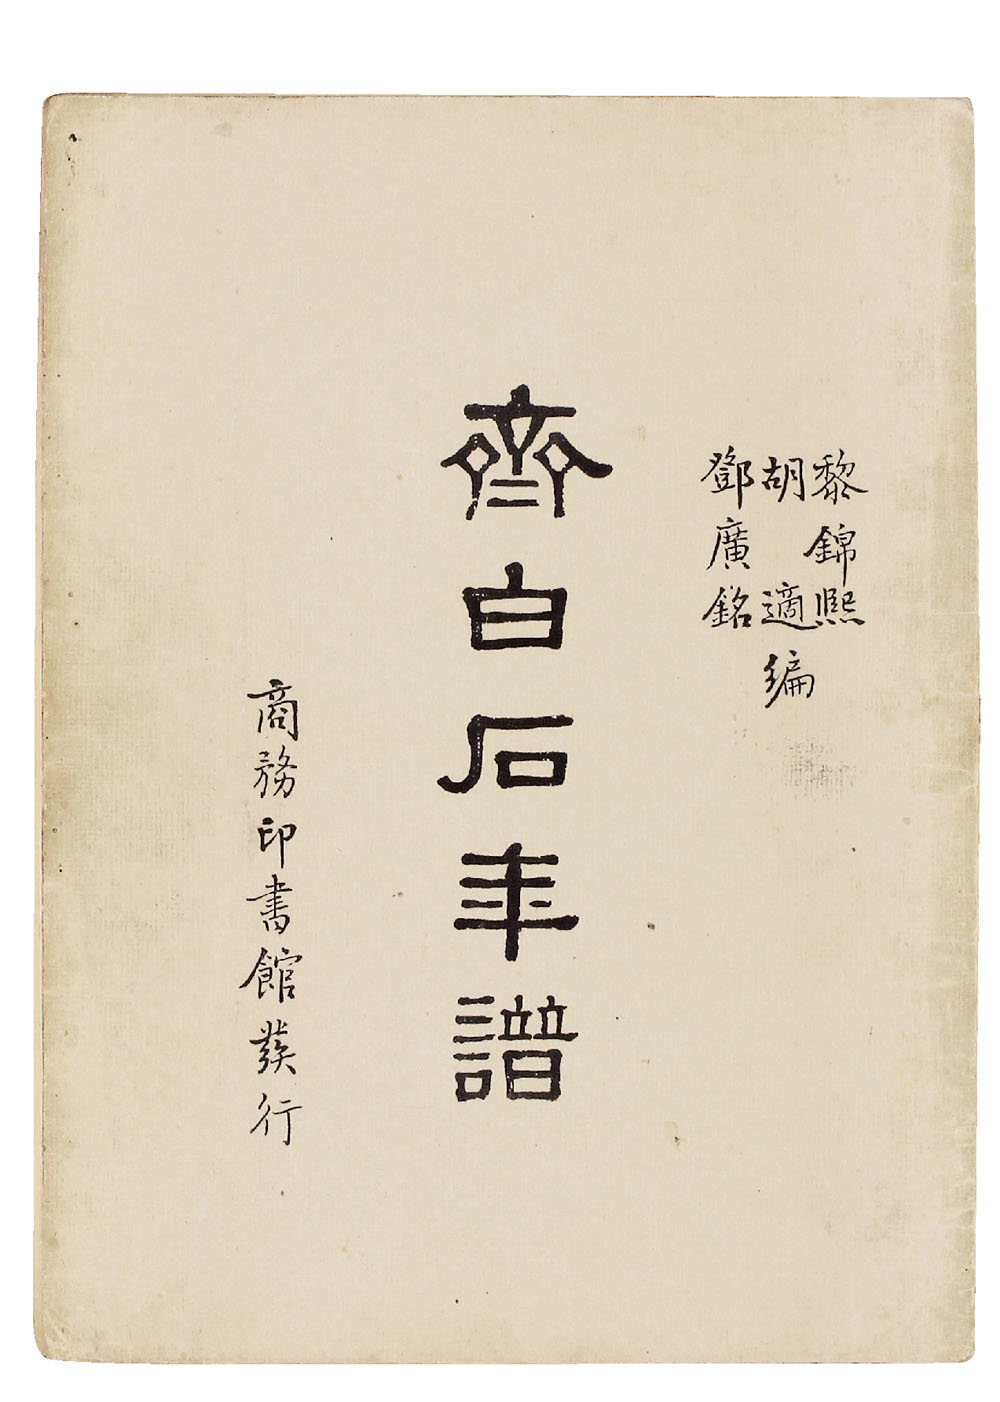 黎錦熙
胡適編
鄧廣銘
齊白石年譜
商務印書館發行